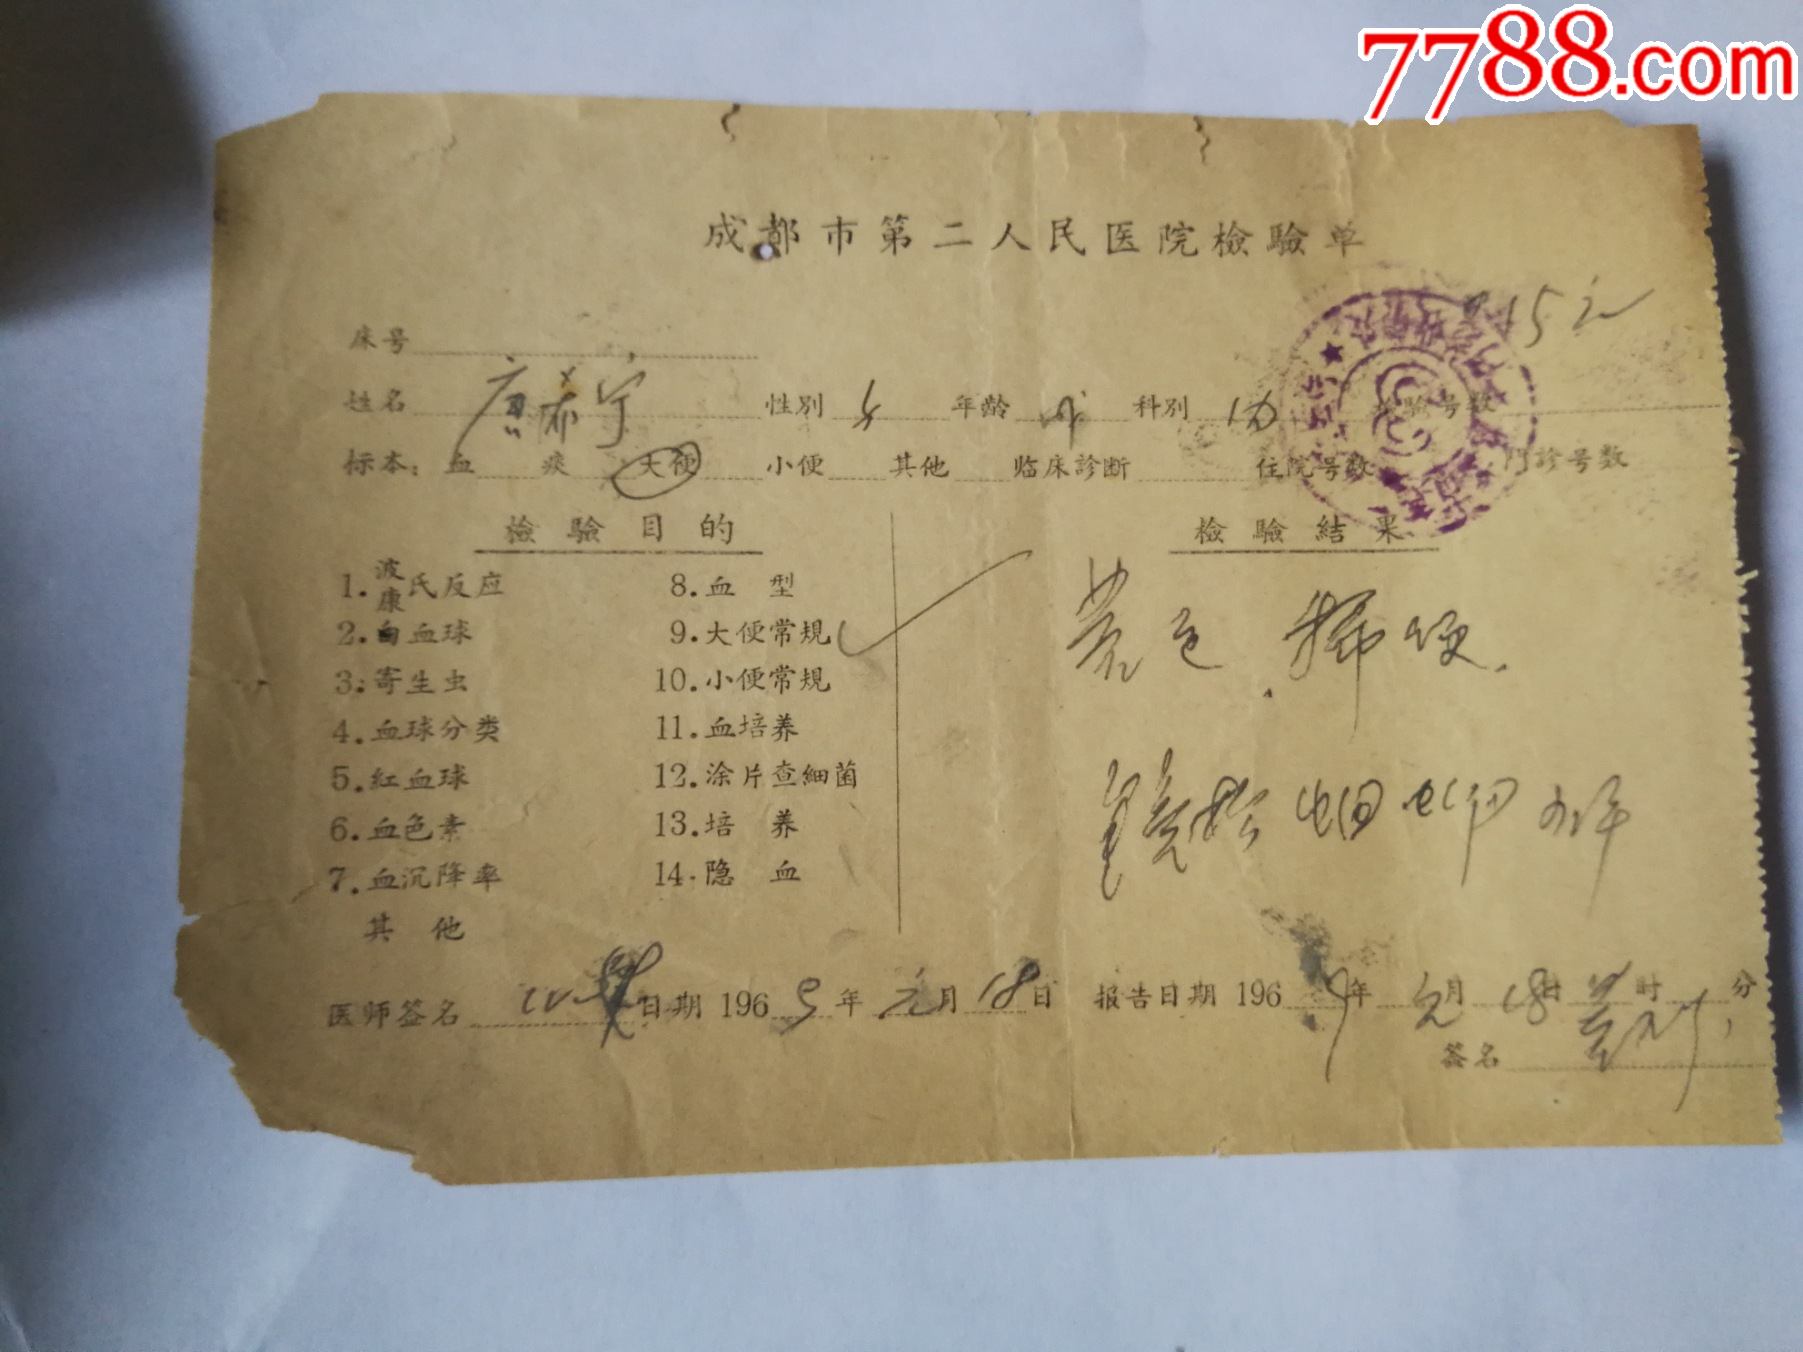 7788.com
成都市第二人民医院檢驗单
15
床号
姓名 唐 宁 性别 女 年龄 科别 内 檢验号数
标本：血 痰 大便 小便 其他 临床診断 住院号数 門診号数
檢驗目的 檢驗結果
1.波康氏反应 8.血 型
2.白血球 9.大便常規
3.寄生虫 10.小便常規
4.血球分类 11.血培养
5.紅血球 12.涂片查細菌
6.血色素 13.培 养
7.血沉降率 14.隐 血
其 他
黄色.稀便.
蛔虫卵少许
医师签名 日期1969年元月18日 报告日期1969年元月18日 时 分
签名